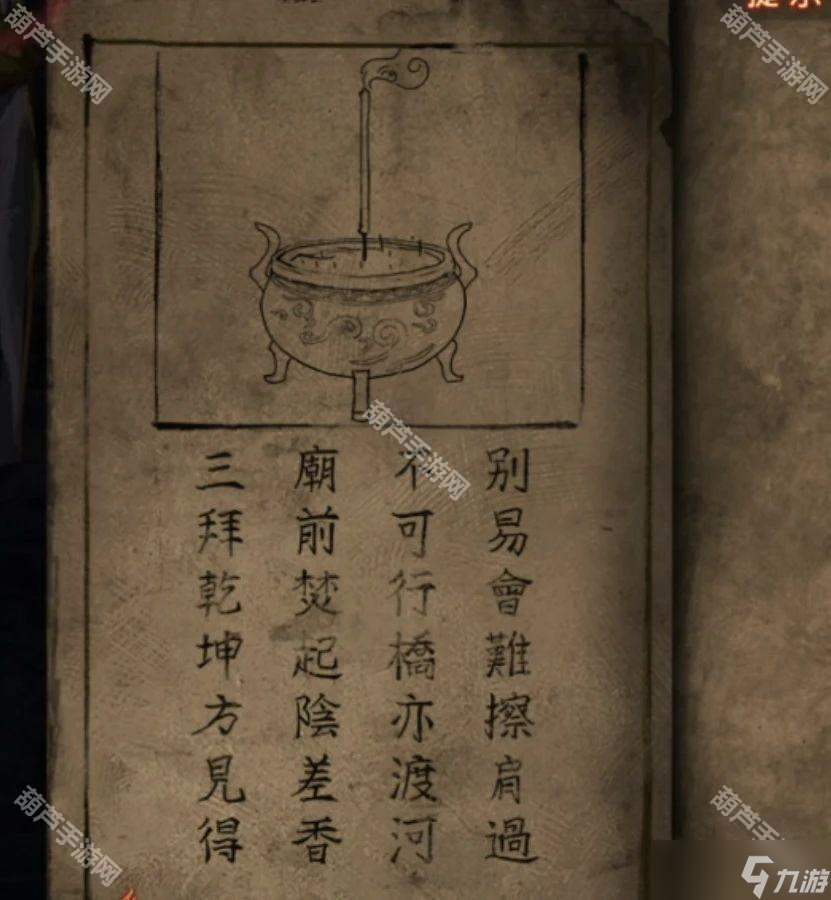 別易會難擦肩過
不可行橋亦渡河
廟前焚起陰差香
三拜乾坤方見得
提示
葫芦手游网
葫芦手游网
葫芦手游网
葫芦手游网
葫芦手游网
九游